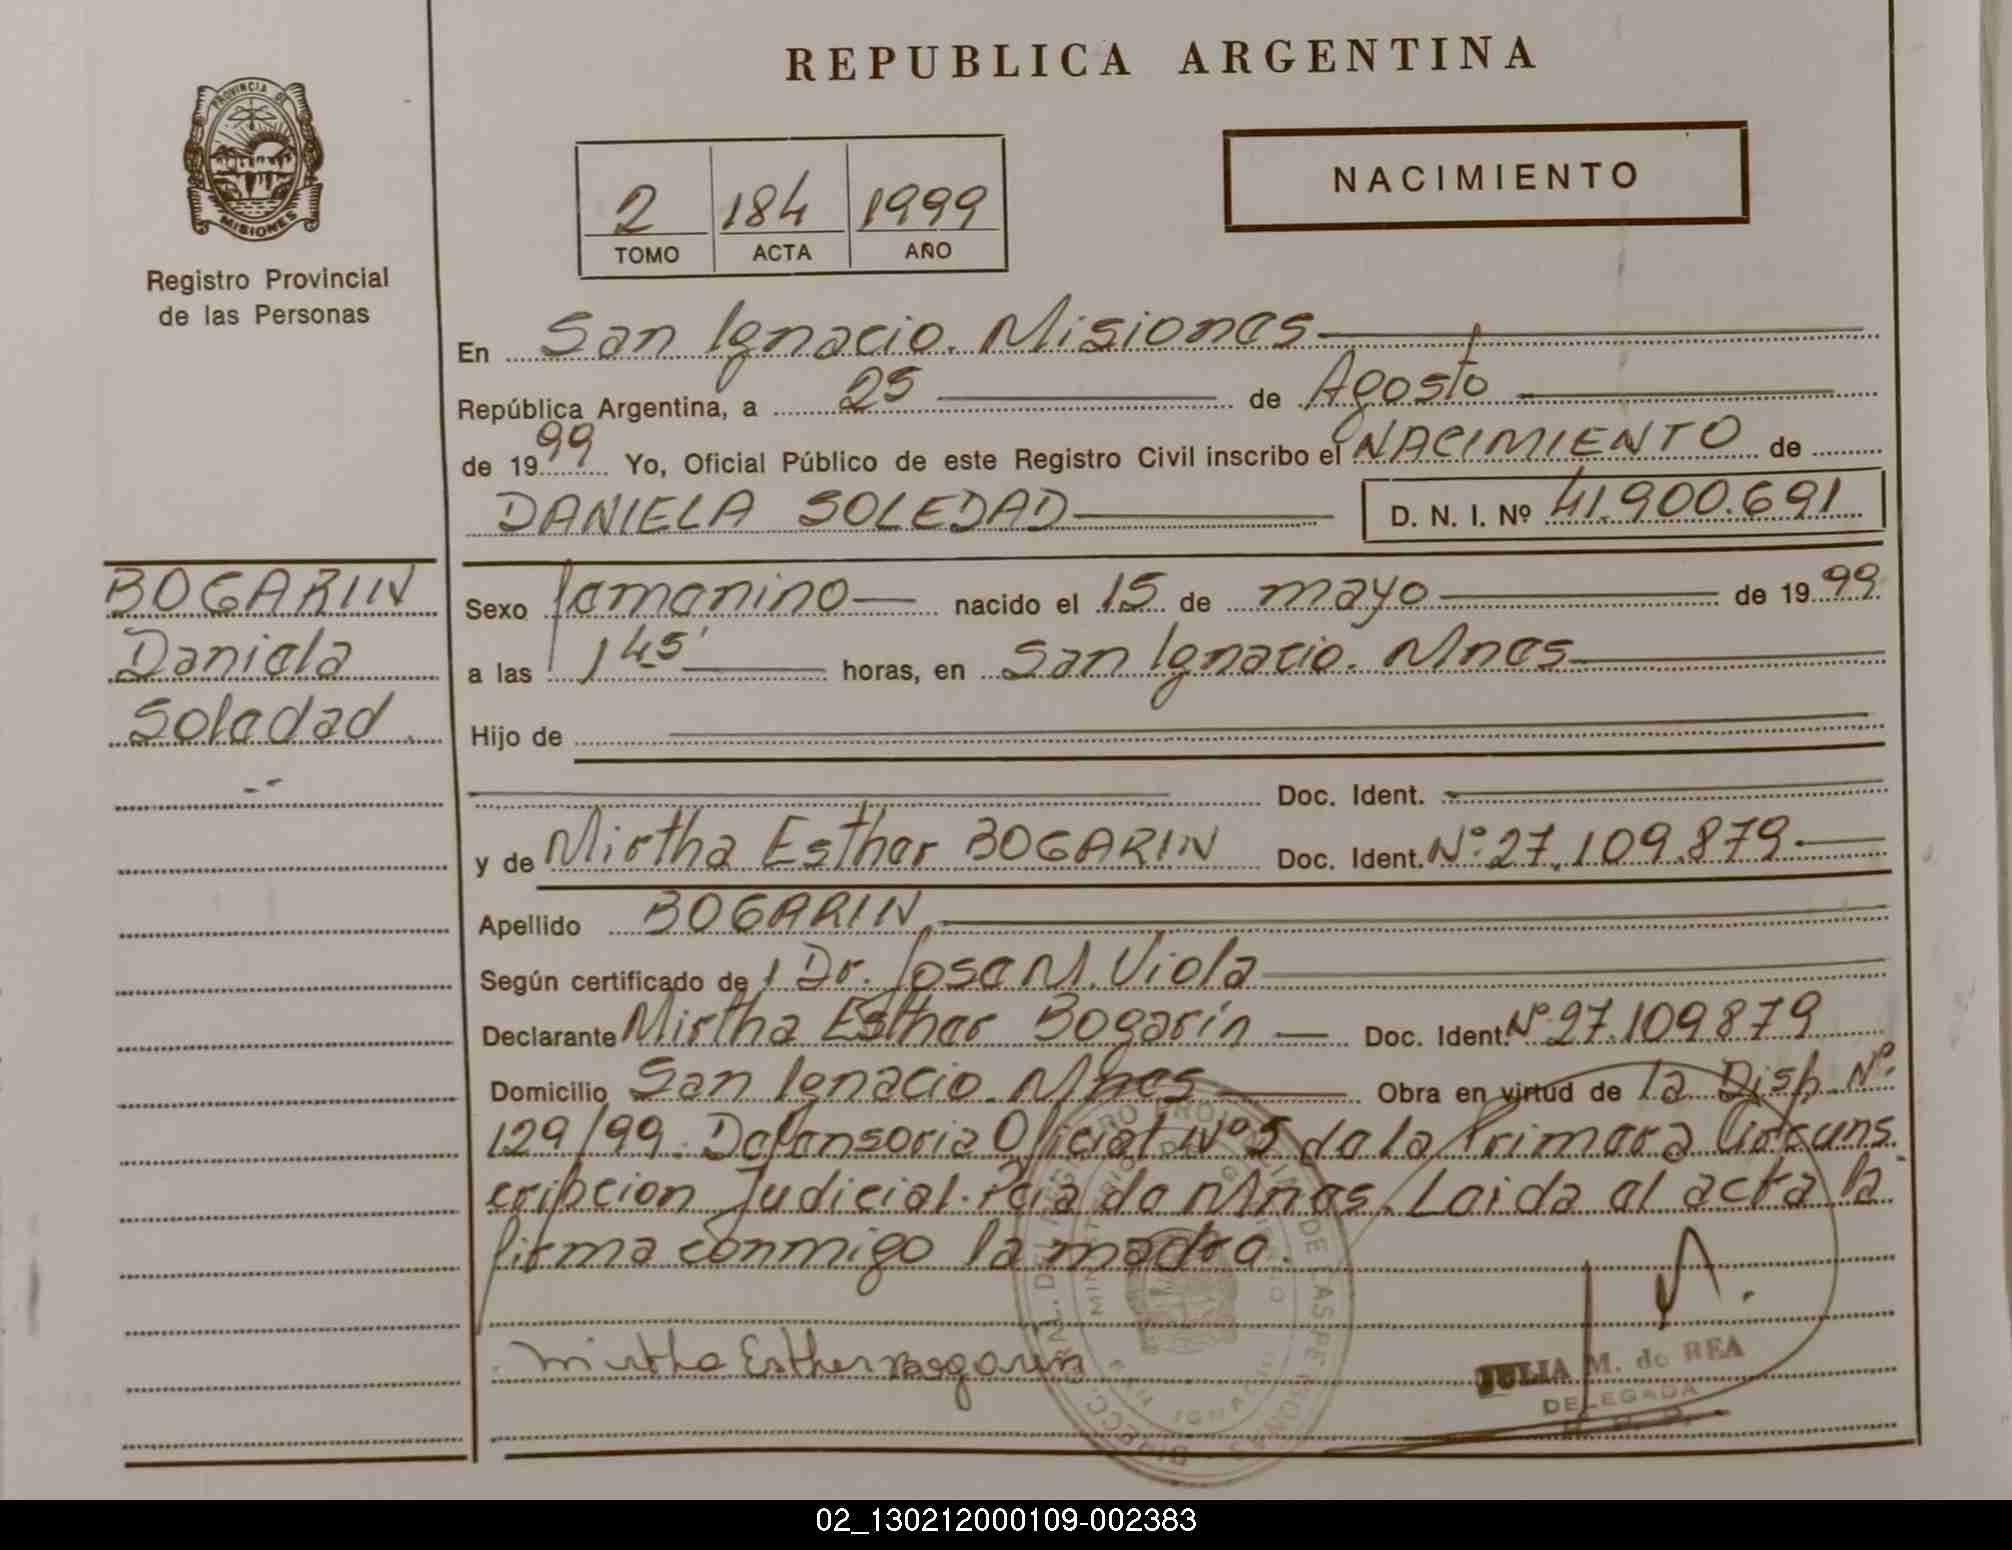 REPUBLICA ARGENTINA
PROVINCIA DE
MISIONES
Registro Provincial
de las Personas
2 184 1999
TOMO ACTA AÑO
NACIMIENTO
En San Ignacio. Misiones
República Argentina, a 25 de Agosto
de 1999 Yo, Oficial Público de este Registro Civil inscribo el NACIMIENTO de
DANIELA SOLEDAD D. N. I. Nº 41.900.691
BOGARIN
Daniela
Soledad
Sexo femenino nacido el 15 de mayo de 1999
a las 1 45' horas, en San Ignacio. Mnes
Hijo de
Doc. Ident.
y de Mirtha Esther BOGARIN Doc. Ident. Nº 27.109.879
Apellido BOGARIN
Según certificado de Dr. Jose M. Viola
Declarante Mirtha Esther Bogarín Doc. Ident. Nº 27.109879
Domicilio San Ignacio. Mnes Obra en virtud de la Disp. Nº
129/99. Defensoria Oficial Nº 5 de la Primera Circuns
cripcion Judicial. Pcia de Mnes. Leida el acta la
firma conmigo la madre.
Mirtha Esther Bogarin
JULIA M. de REA
DELEGADA
R. P. P.
02_130212000109-002383